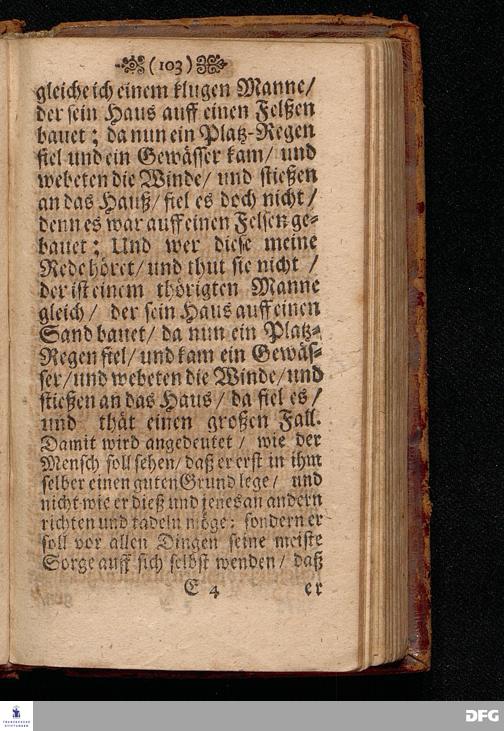 (103)
gleiche ich einem klugen Manne/
der sein Haus auff einen Felßen
bauet; da nun ein Platz-Regen
fiel und ein Gewässer kam/ und
webeten die Winde/ und stießen
an das Hauß/ fiel es doch nicht/
denn es war auff einen Felsen ge-
bauet; Und wer diese meine
Rede höret/ und thut sie nicht /
der ist einem thörigten Manne
gleich/ der sein Haus auff einen
Sand bauet/ da nun ein Platz-
Regen fiel/ und kam ein Gewäs-
ser/ und webeten die Winde/ und
stießen an das Haus/ da fiel es/
und thät einen großen Fall.
Damit wird angedeutet/ wie der
Mensch soll sehen/ daß er erst in ihm
selber einen guten Grund lege/ und
nicht wie er dieß und jenes an andern
richten und tadeln möge: sondern er
soll vor allen Dingen seine meiste
Sorge auff sich selbst wenden/ daß
E 4 er
FRANCKESCHE
STIFTUNGEN
DFG